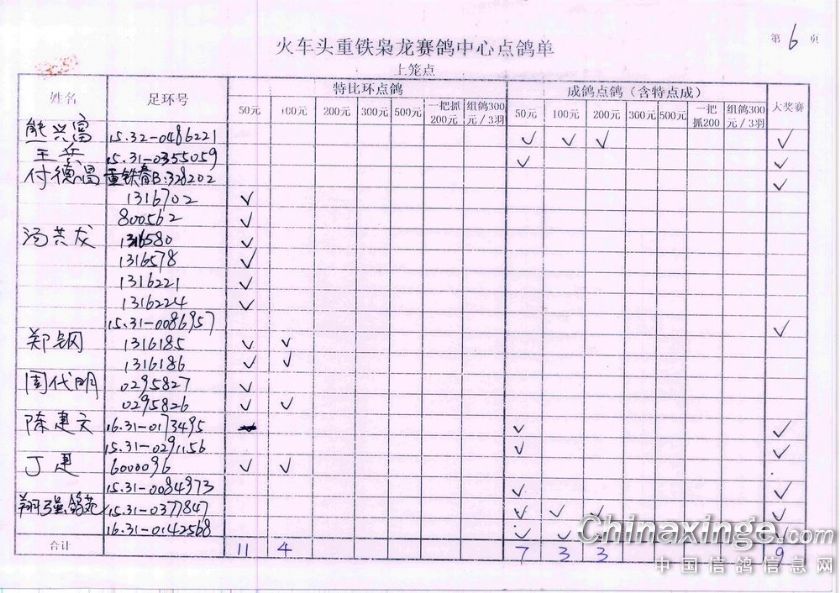 第 6 页
火车头重铁枭龙赛鸽中心点鸽单
上笼点
姓名 足环号 特比环点鸽 成鸽点鸽（含特点成） 大奖赛
50元 100元 200元 300元 500元 一把抓200元 组鸽300元/3羽 50元 100元 200元 300元 500元 一把抓200 组鸽300元/3羽
熊兴富 15.32-0486221 ✓ ✓ ✓ ✓
王兵 15.31-0355059 ✓ ✓
付德昌 重铁春B:328202 ✓
1316702 ✓
800562 ✓
汤共龙 1316580 ✓
1316578 ✓
1316221 ✓
1316224 ✓
15.31-0086957 ✓
郑钢 1316185 ✓ ✓
1316186 ✓ ✓
周代明 0295827 ✓
0295826 ✓ ✓
陈建文 16.31-0173495 ✓ ✓
15.31-0291156 ✓ ✓
丁建 6000096 ✓ ✓
15.31-0084973 ✓ ✓
翔强鸽苑 15.31-0377847 ✓ ✓ ✓ ✓
16.31-0142568 ✓ ✓ ✓ ✓
合计 11 4 7 3 3 9
Chinaxinge.com
中国信鸽信息网